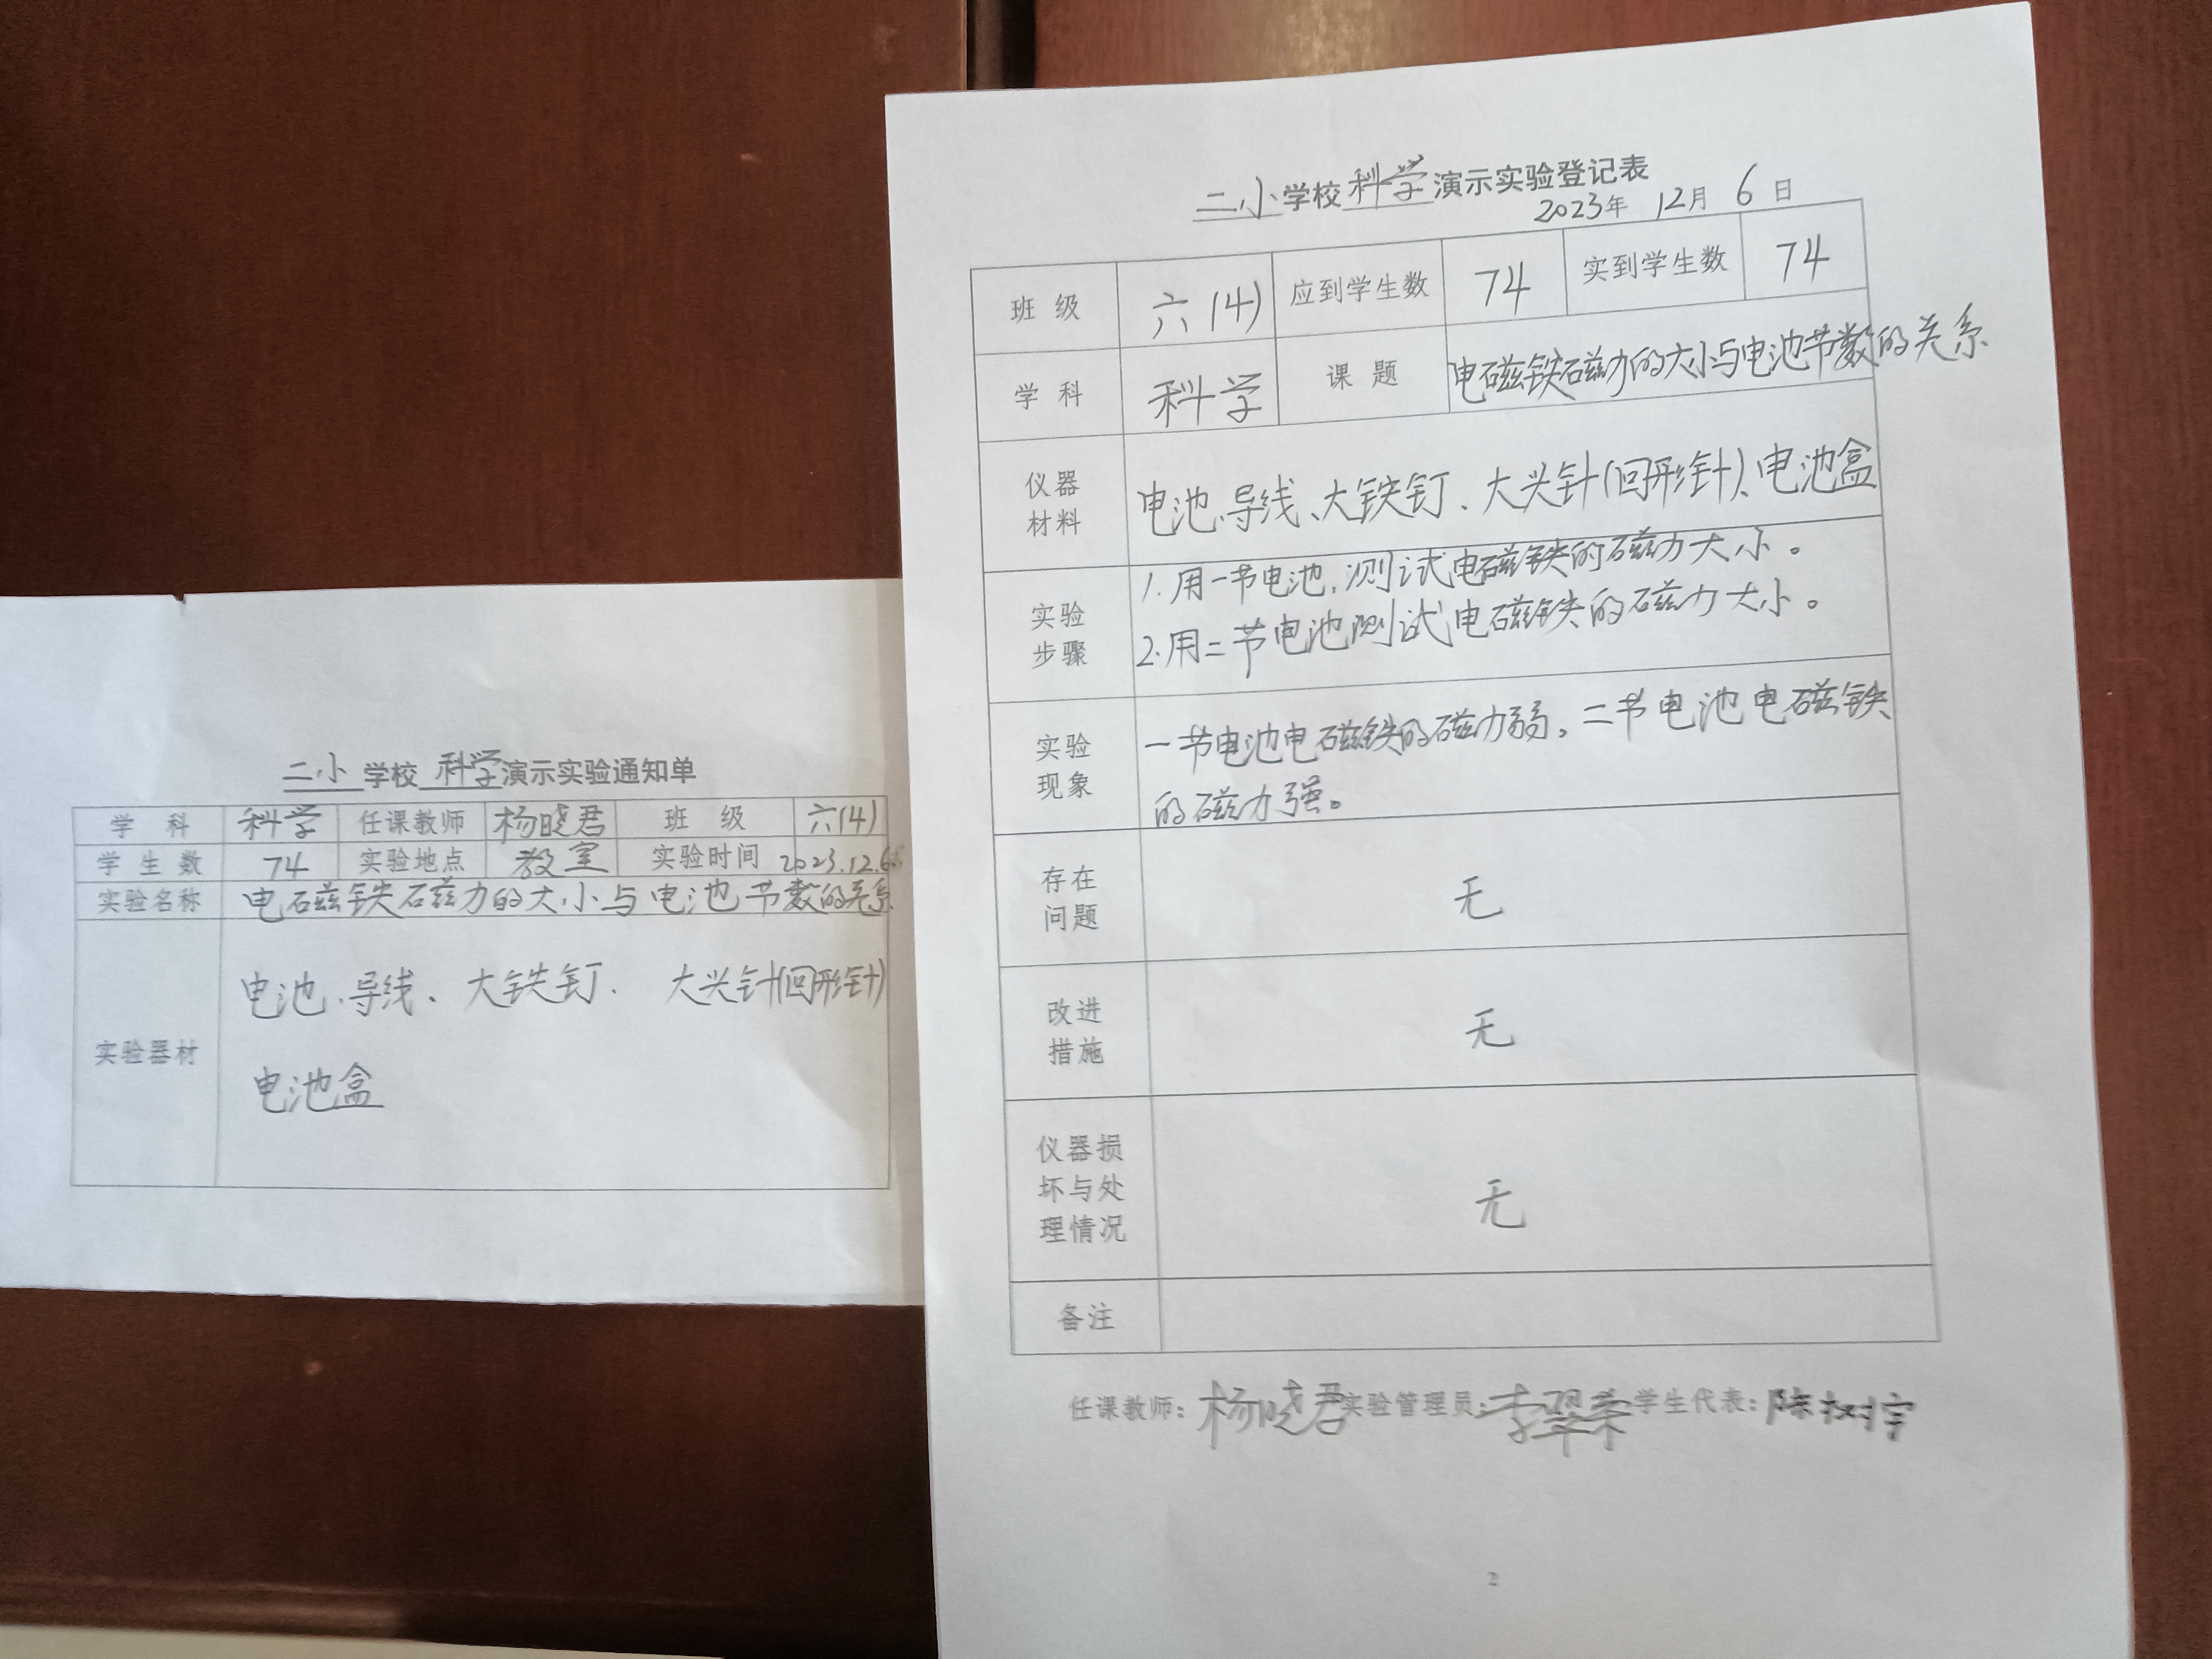 二小学校科学演示实验通知单
学 科 科学 任课教师 杨晓君 班 级 六(4)
学 生 数 74 实验地点 教室 实验时间 2023.12.6
实验名称 电磁铁磁力的大小与电池节数的关系
实验器材 电池、导线、大铁钉、大头针(回形针)
电池盒
二小学校科学演示实验登记表
2023年 12月 6 日
班 级 六(4) 应到学生数 74 实到学生数 74
学 科 科学 课 题 电磁铁磁力的大小与电池节数的关系
仪器
材料
电池、导线、大铁钉、大头针(回形针)、电池盒
实验
步骤
1.用一节电池,测试电磁铁的磁力大小。
2.用二节电池测试电磁铁的磁力大小。
实验
现象
一节电池电磁铁的磁力弱。二节电池电磁铁
的磁力强。
存在
问题
无
改进
措施
无
仪器损
坏与处
理情况
无
备注
任课教师: 杨晓君 实验管理员: 李翠荣 学生代表: 陈树宇
2